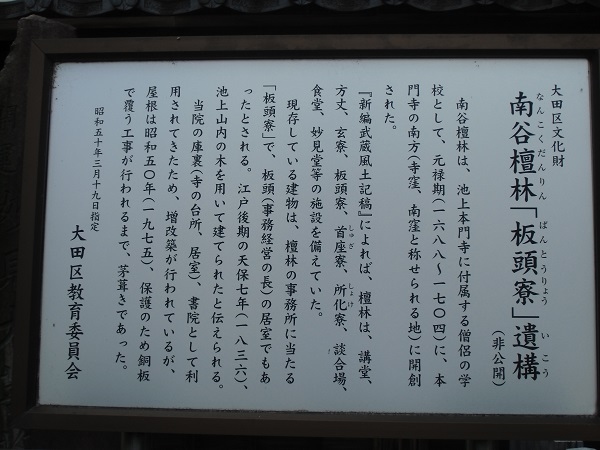 大田区文化財
なんこくだんりん ばんとうりょう いこう
南谷檀林「板頭寮」遺構
(非公開)
南谷檀林は、池上本門寺に付属する僧侶の学
校として、元禄期(一六八八〜一七〇四)に、本
門寺の南方(寺窪、南窪と称せられる地)に開創
された。
『新編武蔵風土記稿』によれば、檀林は、講堂、
方丈、玄寮、板頭寮、首座寮、所化寮、談合場、
しゅざ しょけ
食堂、妙見堂等の施設を備えていた。
現存している建物は、檀林の事務所に当たる
「板頭寮」で、板頭(事務経営の長)の居室でもあ
ったとされる。江戸後期の天保七年(一八三六)、
池上山内の木を用いて建てられたと伝えられる。
当院の庫裏(寺の台所、居室)、書院として利
用されてきたため、増改築が行われているが、
屋根は昭和五〇年(一九七五)、保護のため銅板
で覆う工事が行われるまで、茅葺きであった。
昭和五十年三月十九日指定
大田区教育委員会